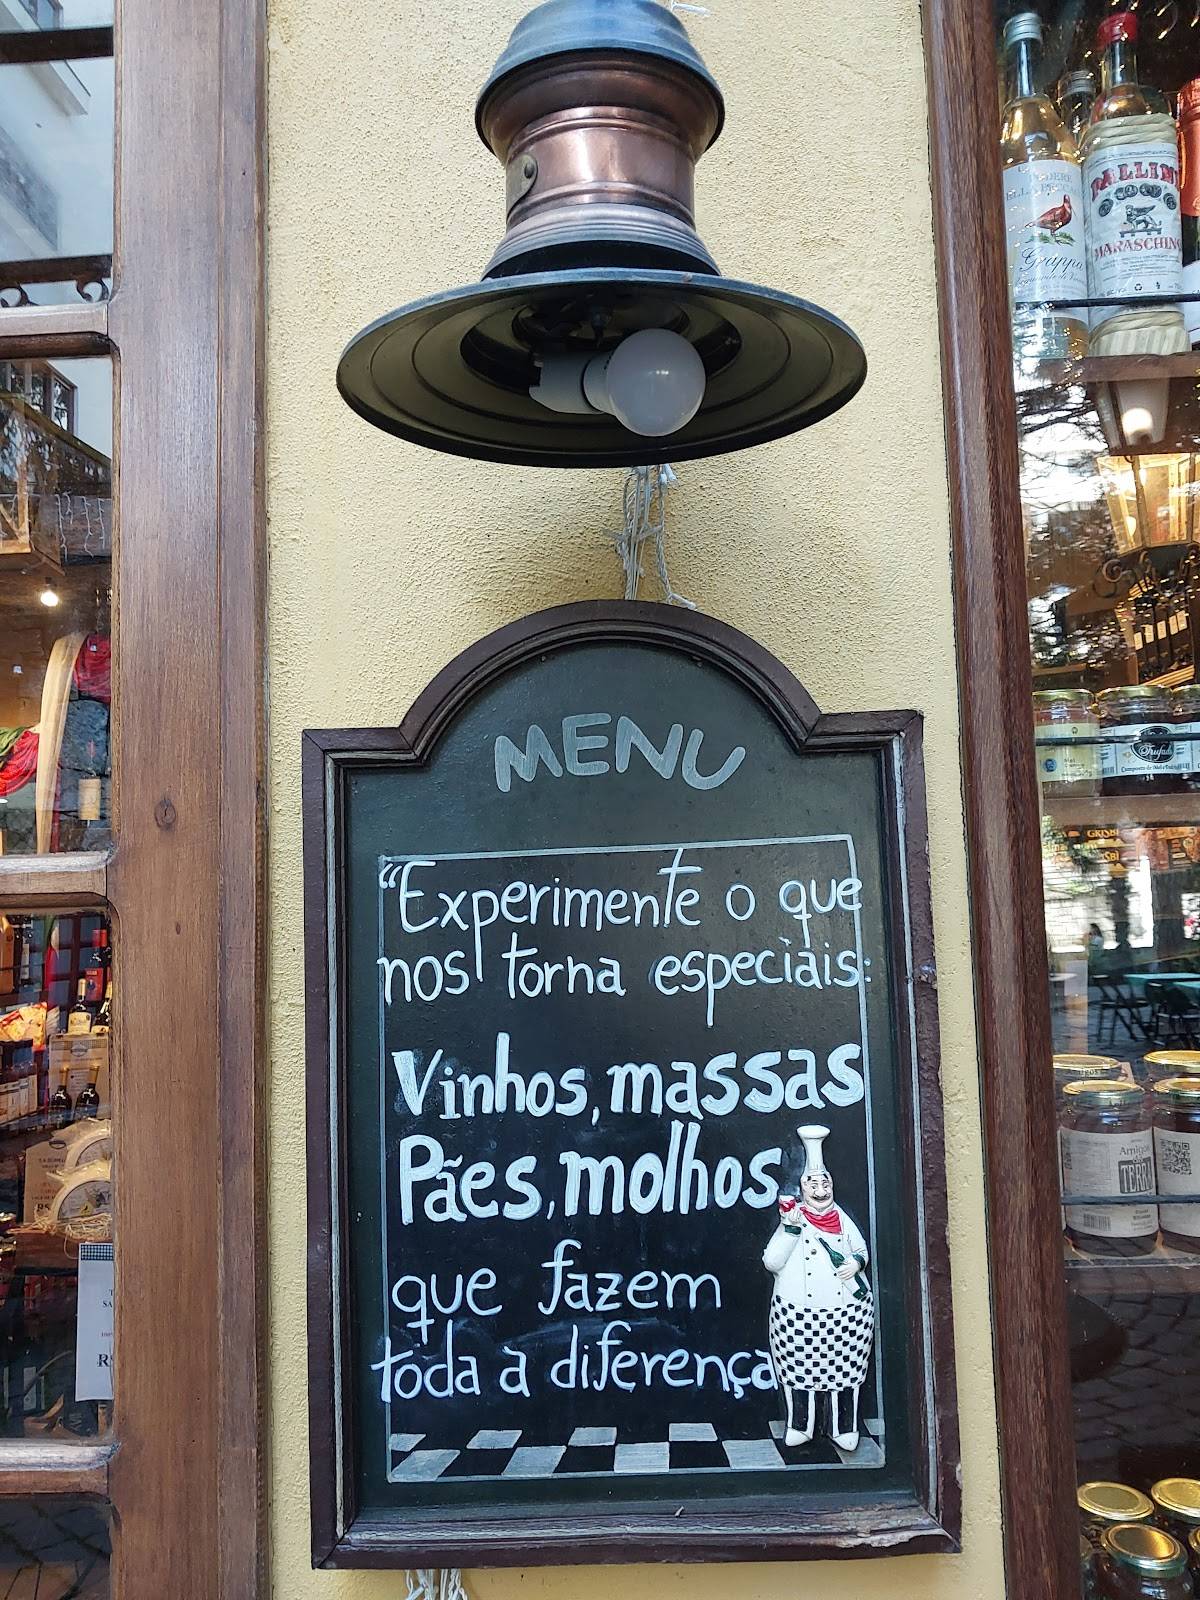 MENU
“Experimente o que
nos torna especiais:
Vinhos, massas
Pães, molhos
que fazem
toda a diferença
Grappa
MARASCHINO
Trufado
Amigos
TERRA